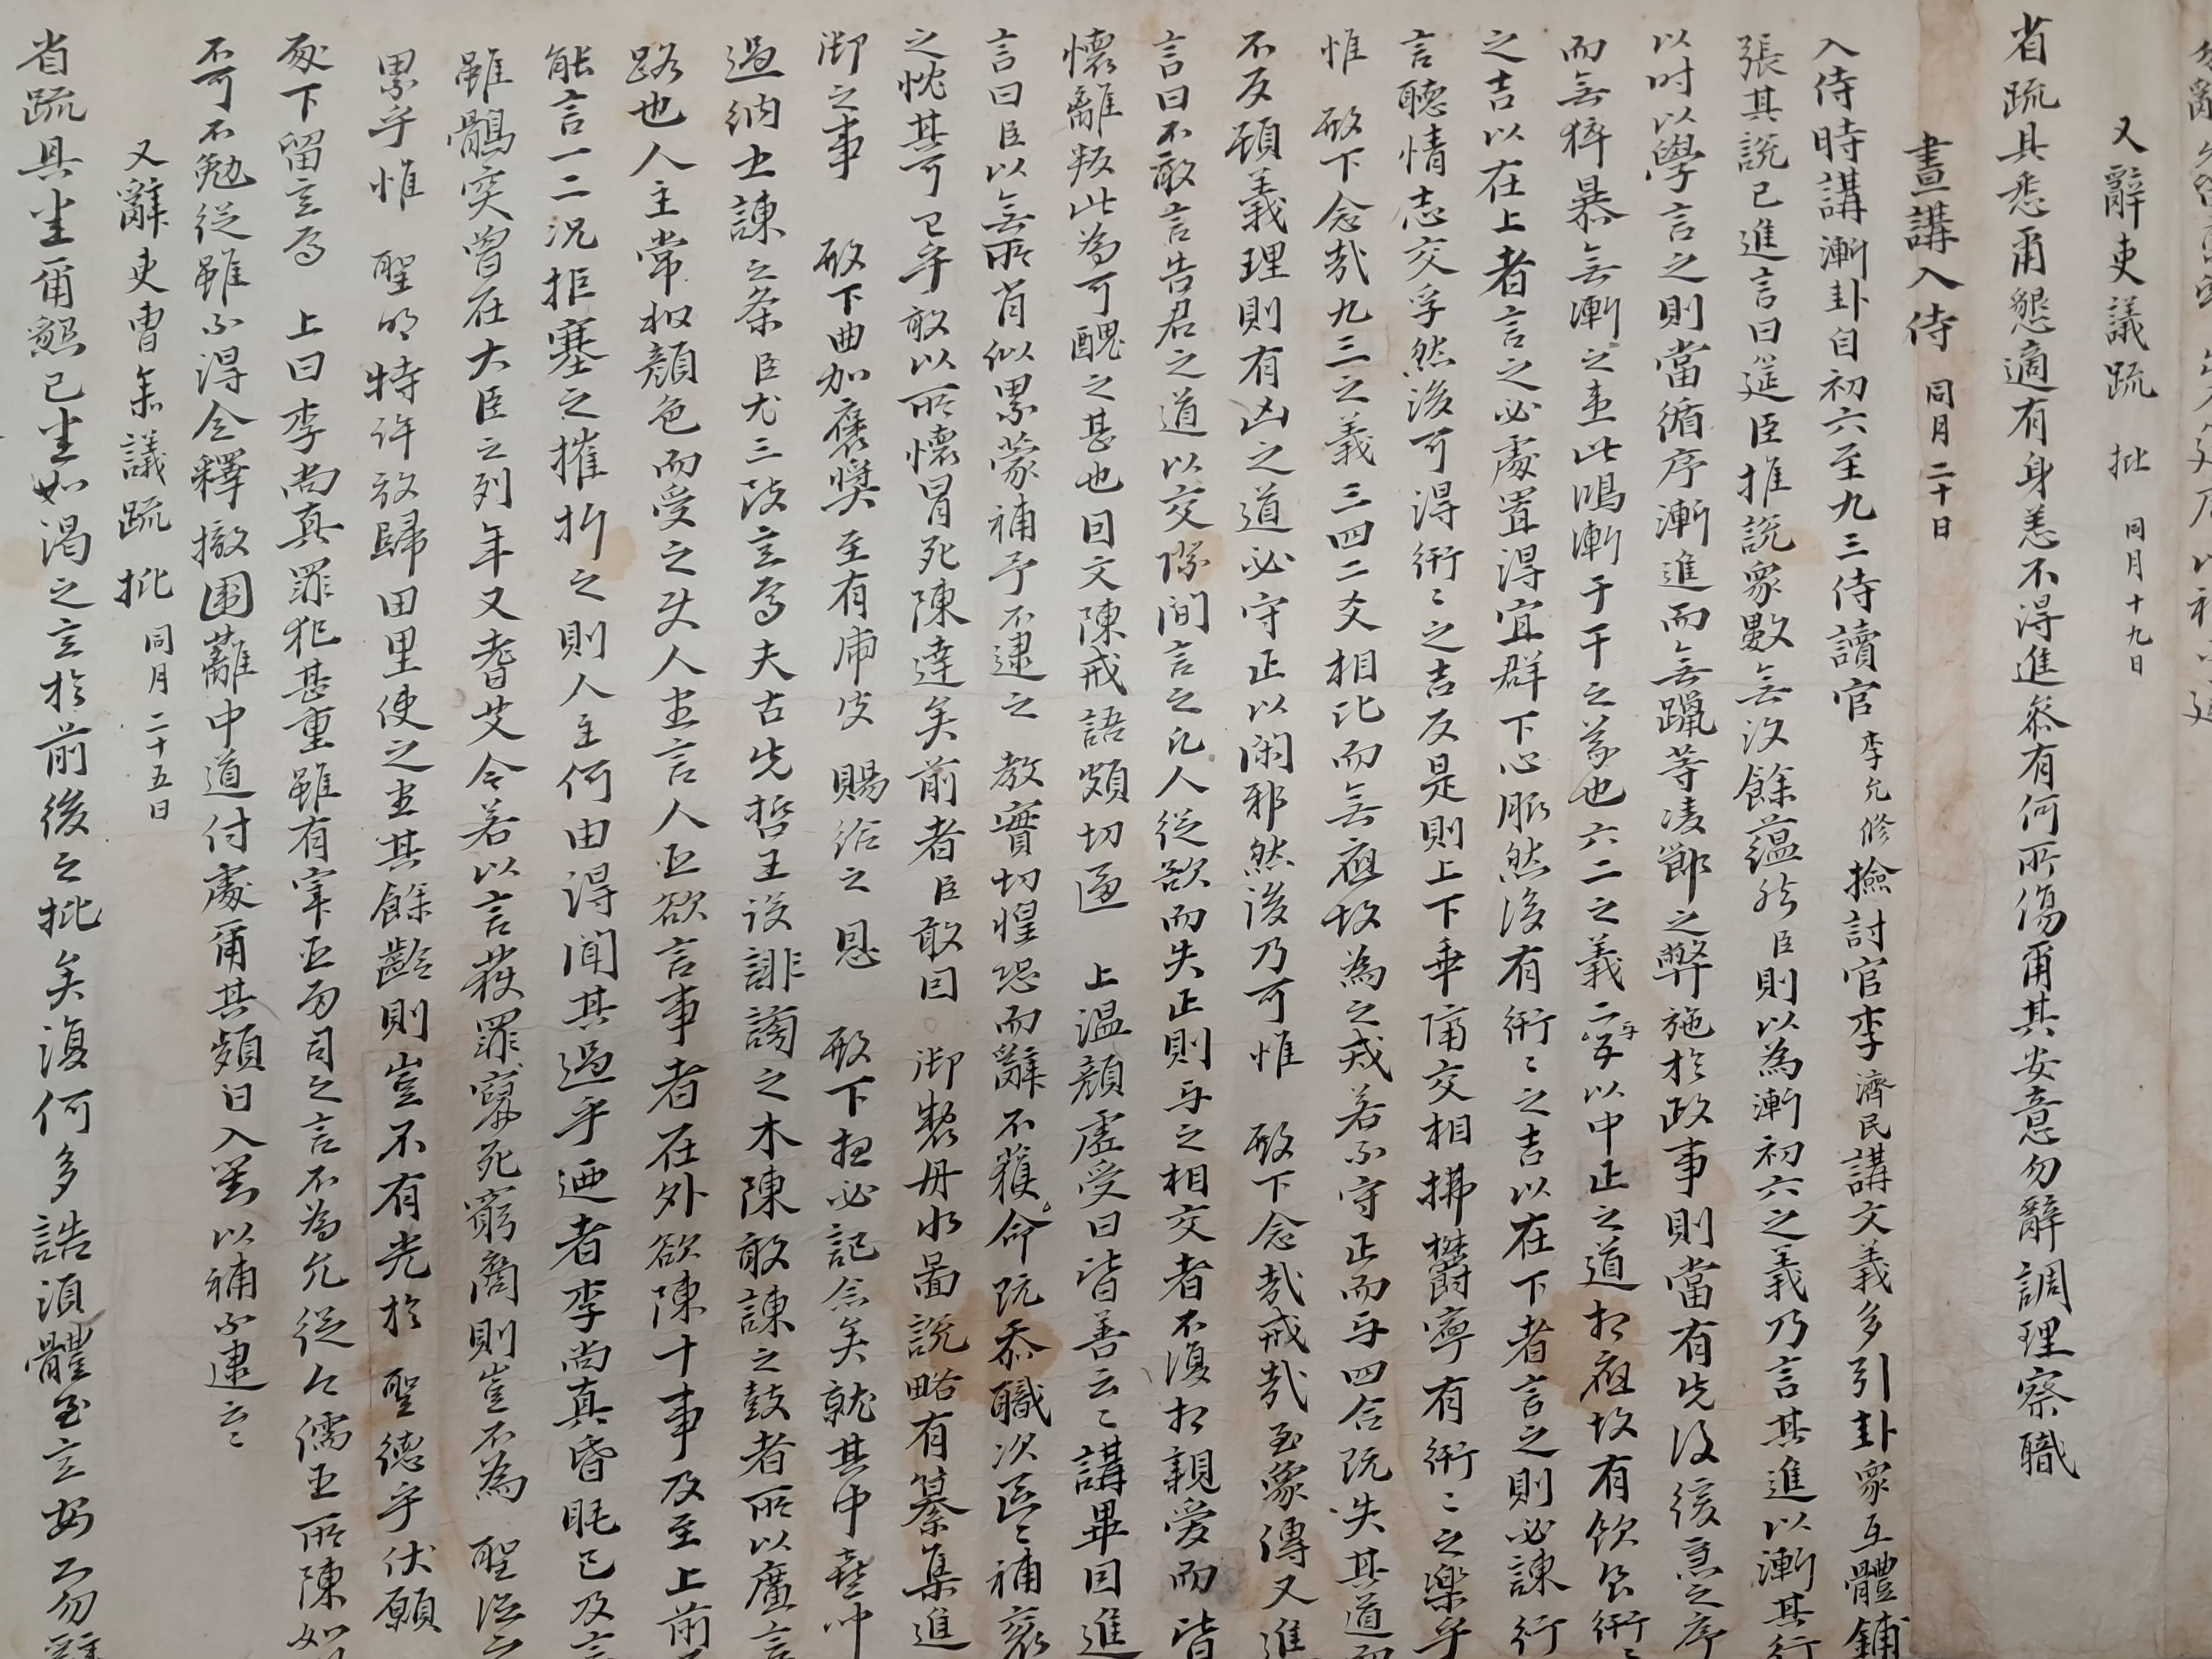 又辭吏議疏 批 同月十九日
省疏具悉爾懇適有身恙不得進參有何所傷爾其安意勿辭調理察職
晝講入侍 同月二十日
入侍時講漸卦自初六至九三侍讀官李允修撿討官李濟民講文義多引卦象互體鋪
張其說已進言曰筵臣推說象數無汐餘蘊然臣則以為漸初六之義乃言其進以漸其行
以时以學言之則當循序漸進而無躐等凌節之弊施於政事則當有先後緩急之序
而無猝暴無漸之患此鴻漸于干之義也六二之義二五以中正之道相應故有飮食衎
之吉以在上者言之必處置得宜群下心服然後有衎〻之吉以在下者言之則必諫行
言聽情志交孚然後可得衎〻之吉反是則上下乖隔交相拂欝寧有衎〻之樂乎
惟 殿下念哉九三之義三四二爻相比而無應故為之戒若不守正而与四合旣失其道而
不反顧義理則有凶之道必守正以闲邪然後乃可惟 殿下念哉戒哉至象傳又進
言曰不敢言告君之道以交際间言之凡人從欲而失正則与之相交者不復相親愛而皆
懷離叛此為可醜之甚也因文陳戒語頗切逼 上温顔虛受曰皆善云〻講畢因進
言曰臣以無所肖似累蒙補予不逮之 教實切惶恐而辭不獲命旣忝職次區〻補袞
之忱其可已乎敢以所懷冒死陳達矣前者臣敢因 御製丹水圖說略有纂集進
御之事 殿下曲加褒奬至有虎皮 賜給之 恩 殿下想必記念矣就其中堯舜
過納士諫之条臣尤三致意焉夫古先哲王設誹謗之木陳敢諫之鼓者所以廣言
路也人主常和顔色而受之夫人患言人臣欲言事者在外欲陳十事及至上前
能言一二况拒塞之摧折之則人主何由得闻其過乎迺者李尚真昏眊已及言
雖鶻突曾在大臣之列年又耆艾今若以言獲罪竄死窮裔則豈不為 聖德
累乎惟 聖明特許放歸田里使之盡其餘齡則豈不有光於 聖德乎伏願
殿下留意焉 上曰李尚真罪犯甚重雖有宰臣勿司之言不為允從今儒臣所陳如
不可不勉從雖不得全釋撤圍蘺中道付處爾其頻日入對以補不逮云〻
又辭吏曹參議疏 批 同月二十五日
省疏具悉爾懇已悉如渴之意於前後之批矣復何多誥須體至意安心勿辭